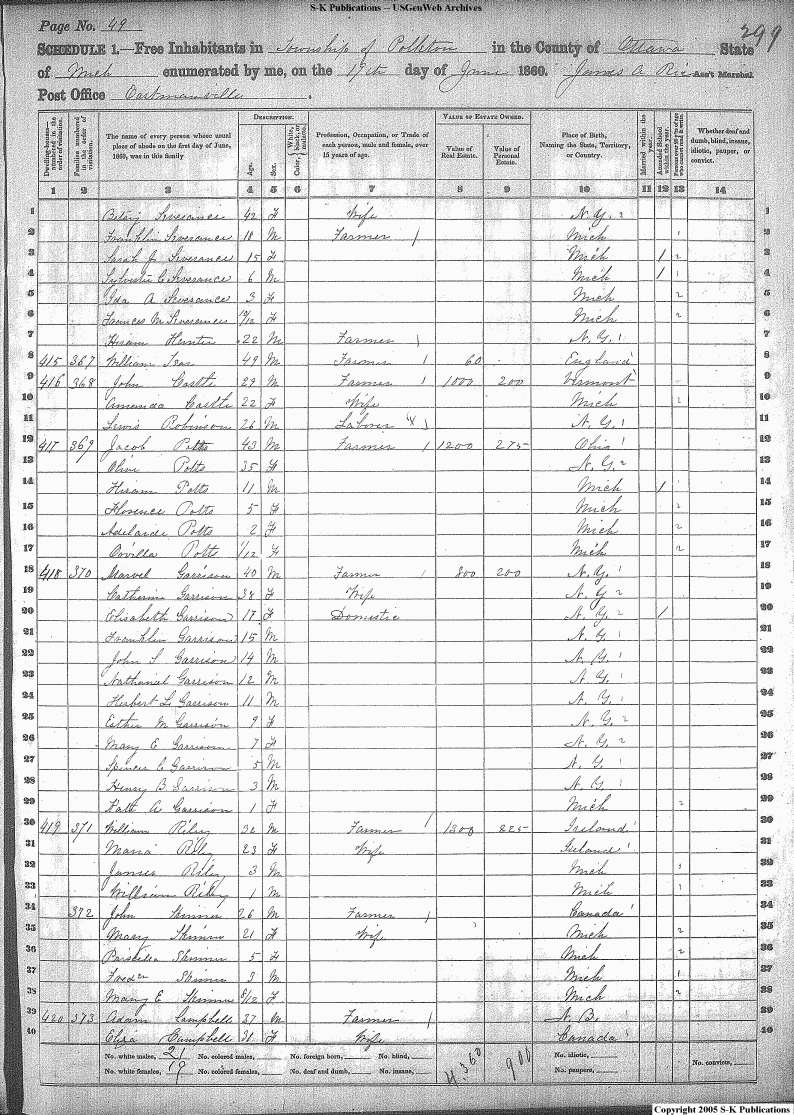 S-K Publications -- USGenWeb Archives
Page No. 49
299
SCHEDULE 1.—Free Inhabitants in Township of Polkton in the County of Ottawa State
of Mich enumerated by me, on the 19th day of June 1860. James A Ass't Marshal
Post Office Eastmanville.
DESCRIPTION. VALUE OF ESTATE OWNED.
Dwelling-houses numbered in the order of visitation. Families numbered in the order of visitation. The name of every person whose usual place of abode on the first day of June, 1860, was in this family Age. Sex. Color, White, black, or mulatto. Profession, Occupation, or Trade of each person, male and female, over 15 years of age. Value of Real Estate. Value of Personal Estate. Place of Birth, Naming the State, Territory, or Country. Married within the year. Attended School within the year. Persons over 20 y'rs of age who cannot read & write. Whether deaf and dumb, blind, insane, idiotic, pauper, or convict.
1 2 3 4 5 6 7 8 9 10 11 12 13 14
1 Betsy Severance 42 F Wife N.Y. 2 1
2 Franklin Severance 18 M Farmer / Mich 1 2
3 Sarah J Severance 15 F Mich / 2 3
4 Sylvester C Severance 6 M Mich / 1 4
5 Ida A Severance 3 F Mich 2 5
6 Frances M Severance 10/12 F Mich 2 6
7 Hiram Hunter 22 M Farmer / N.Y. 1 7
8 415 367 William 49 M Farmer 1 60 England 1 8
9 416 368 John Castle 29 M Farmer 1 1000 200 Vermont 1 9
10 Amanda Castle 22 F Wife Mich 2 10
11 Lewis Robinson 26 M Laborer N.Y. 1 11
12 417 369 Jacob Potts 43 M Farmer 1 1200 275 Ohio 1 12
13 Olive Potts 35 F N.Y. 2 13
14 Hiram Potts 11 M Mich / 1 14
15 Florence Potts 5 F Mich 2 15
16 Adelaide Potts 2 F Mich 2 16
17 Ovilla Potts 1/12 F Mich 2 17
18 418 370 Marvel Garrison 40 M Farmer 1 800 200 N.Y. 1 18
19 Catherine Garrison 38 F Wife N.Y. 2 19
20 Elisabeth Garrison 17 F Domestic N.Y. 2 / 20
21 Franklin Garrison 15 M N.Y. 1 21
22 John S Garrison 14 M N.Y. 1 22
23 Nathanial Garrison 12 M N.Y. 1 23
24 Herbert L Garrison 11 M N.Y. 1 24
25 Esther M Garrison 9 F N.Y. 2 25
26 Mary E Garrison 7 F N.Y. 2 26
27 Spencer C Garrison 5 M N.Y. 1 27
28 Henry B Garrison 3 M N.Y. 1 28
29 Kate A Garrison 1 F Mich 2 29
30 419 371 William Riley 32 M Farmer / 1300 225 Ireland 1 30
31 Maria Riley 23 F Wife Ireland 31
32 James Riley 3 M Mich 1 32
33 William Riley 1 M Mich 1 33
34 372 John Skinner 26 M Farmer / Canada 1 34
35 Mary Skinner 21 F Wife Mich 2 35
36 Skinner 5 F Mich 2 36
37 Skinner 3 M Mich 1 37
38 Mary E Skinner 6/12 F Mich 2 38
39 420 373 Adam Campbell 37 M Farmer / N.B. 39
40 Eliza Campbell 31 F Wife Canada 40
No. white males, 21 No. colored males, No. foreign born, No. blind, 4,360 900 No. idiotic, No. convicts,
No. white females, 19 No. colored females, No. deaf and dumb, No. insane, No. paupers,
Copyright 2005 S-K Publications